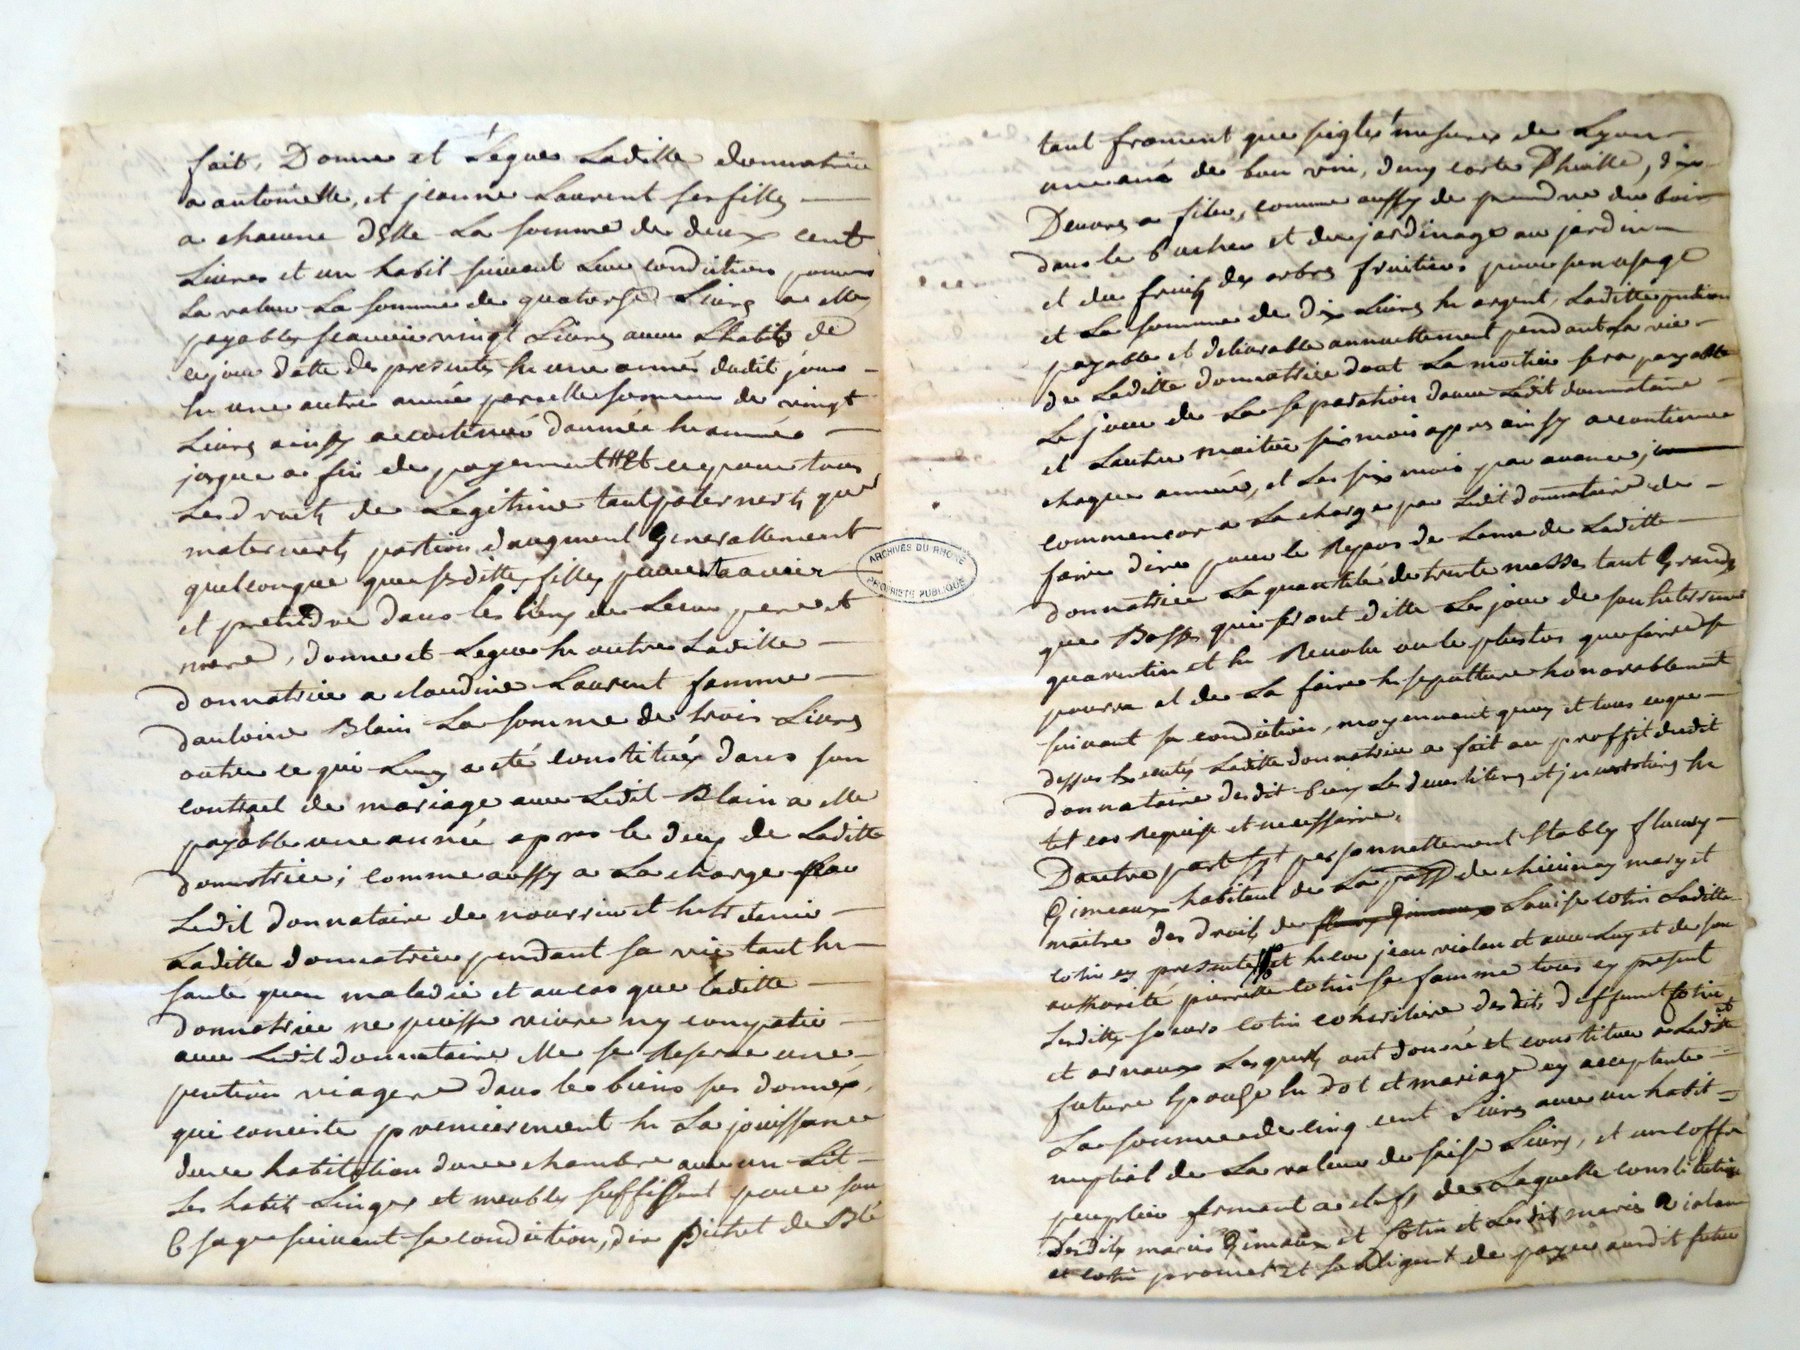 fait, Donne et Legue Laditte donnatrice
a antoinette, et jeanne Laurent ses filles
a chacune d'Elle La somme de deux cent
Livres et un habit suivant Leur condition pour
La valeur La somme de quatorse Livres a elles
payables scavoir vingt Livres avec L'habit de
ce jour datte des presentes en une année dudit jour
en une autre année pareille somme de vingt
Livres ainsy a continué d'année en année
jusque a fin de payement et ce pour tous
Les droits de Legitime tant paternels que
maternels portion d'augment Generallement
quelconque que sesdittes filles peuvent avoir
et pretendre dans les biens de Leurs pere et
mere, donne et Legue en outre Laditte
donnatrice a claudine Laurent famme
d'antoine Blain La somme de trois Livres
outre ce qui Luy a eté constitué dans son
contract de mariage avec Ledit Blain a elle
payable une année apres le deces de Laditte
donnatrice, comme aussy a La charge par
Ledit donnataire de nourrir et entretenir
Laditte donnatrice pendant sa vie tant en
santé quen maladie et au cas que laditte
donnatrice ne puisse vivre ny compatir
avec Ledit donnataire elle se Reserve une
pention viagere dans les biens ses donnés,
qui conciste premierement en La jouissance
dune habitation dune chambre avec un Lit
Les habit Linges et meubles suffissant pour son
Usage suivant sa condition, dix Bichet de Blé
tant froment que seigle mesure de Lyon
une ané de bon vin, dix
comme aussy de prendre du bois
dans le bucher et du jardinage au jardin
et du fruit des arbres fruitiers pour son usage
et La somme de dix Livres en argent, Laditte pention
payable et delivrable annuellement pendant La vie
de Laditte donnatrice dont La moitié sera payable
Le jour de La separation davec Ledit donnataire
et Lautre moitié six mois apres ainsy a continuer
chaque année, et Les six mois par avance,
commencer a La charge par Ledit donnataire de
faire dire pour le Repos de Lame de Laditte
donnatrice La quantité de trente messes tant Grandes
que Basses qui seront ditte Les jour de son enterrement
quarantin et en Revolu ou le plustos que faire se
pourra et de La faire ensepulturer honorablement
suivant sa condition, moyennant quoy et tous ce que
dessus Laditte donnatrice a fait au proffit dudit
donnataire desdit biens Les devestitures et investitures en
tel cas Requise et necessaire,
Dautre part sont personnellement Etably fleury
Gimeaux habitant de La parroisse de chevinay mary et
maitre des droits de Louise cotin Laditte
cotin cy presente et encor jean violan et avec Luy et de son
authorité pierrette cotin sa famme tous cy present
Lesdittes soeurs cotin coheritiere desdits deffunct cotin
et arnaux Lesquels ont donné et constitué a Laditte
future Epouse en dot et mariage cy acceptante
La somme de cinq cent Livres avec un habit
nuptial de La valeur de seise Livres, et un coffre
peuplier fermant a clefs de Laquelle constitution
Lesdits mariés Gimeaux et Cotin et Lesdit mariés violan
et cotin promet et sobligent de payer audit futur
ARCHIVES DU RHONE
PROPRIÉTÉ PUBLIQUE